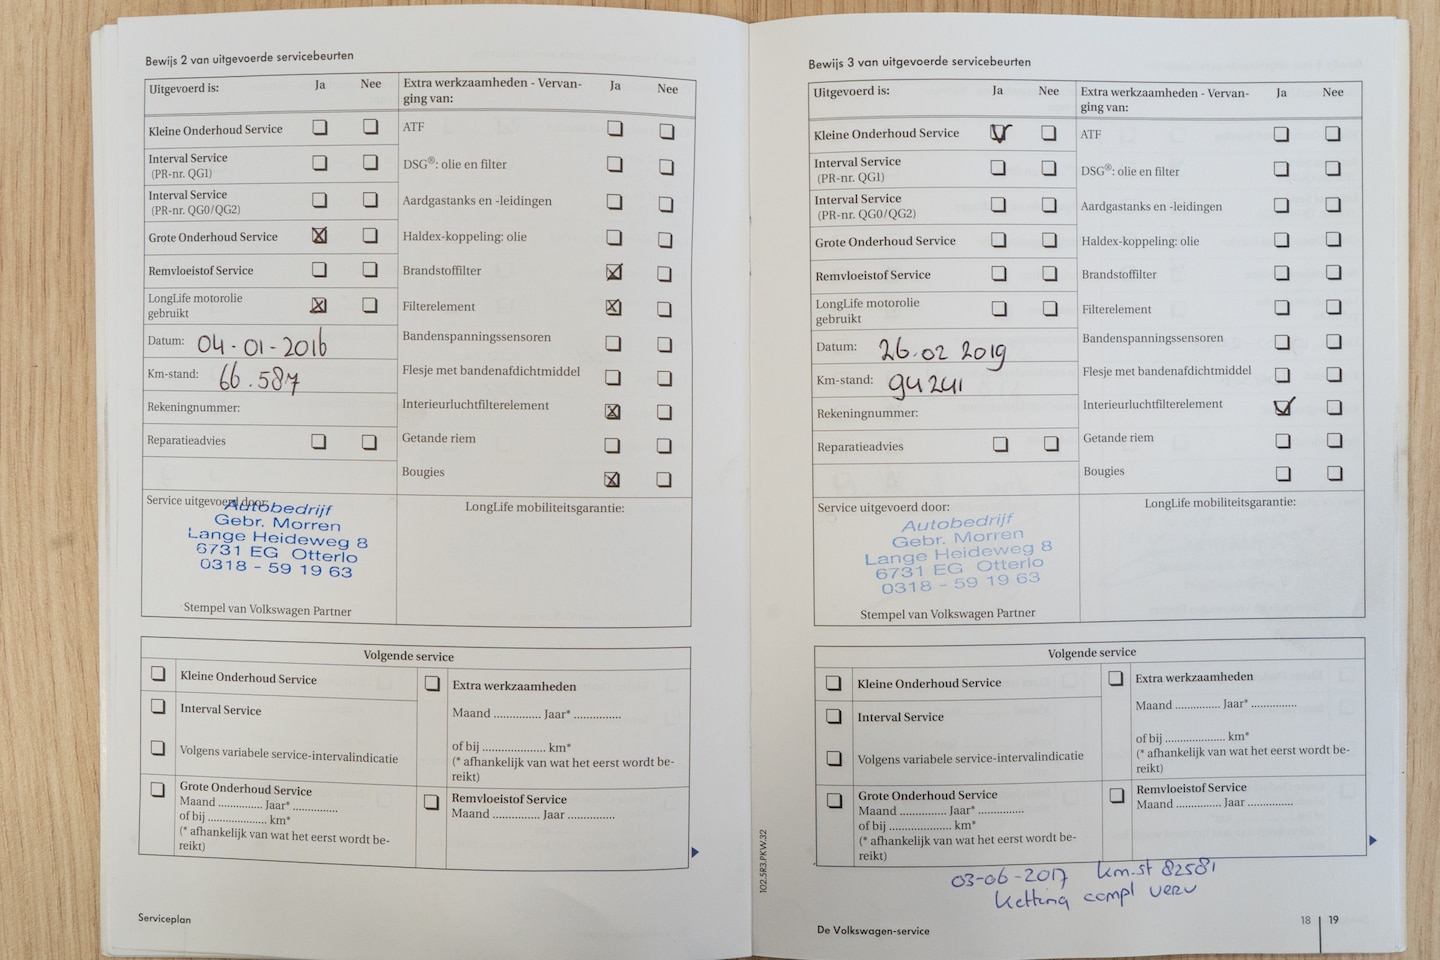 Bewijs 2 van uitgevoerde servicebeurten
Uitgevoerd is: Ja Nee
Kleine Onderhoud Service
Interval Service
(PR-nr. QG1)
Interval Service
(PR-nr. QG0/QG2)
Grote Onderhoud Service
Remvloeistof Service
LongLife motorolie
gebruikt
Datum: 04-01-2016
Km-stand: 66.587
Rekeningnummer:
Reparatieadvies
Extra werkzaamheden - Vervan-
ging van: Ja Nee
ATF
DSG®: olie en filter
Aardgastanks en -leidingen
Haldex-koppeling: olie
Brandstoffilter
Filterelement
Bandenspanningssensoren
Flesje met bandenafdichtmiddel
Interieurluchtfilterelement
Getande riem
Bougies
Service uitgevoerd door:
Autobedrijf
Gebr. Morren
Lange Heideweg 8
6731 EG Otterlo
0318 - 59 19 63
Stempel van Volkswagen Partner
LongLife mobiliteitsgarantie:
Volgende service
Kleine Onderhoud Service
Interval Service
Volgens variabele service-intervalindicatie
Grote Onderhoud Service
Maand ............... Jaar* ...............
of bij .................... km*
(* afhankelijk van wat het eerst wordt be-
reikt)
Extra werkzaamheden
Maand ............... Jaar* ...............
of bij .................... km*
(* afhankelijk van wat het eerst wordt be-
reikt)
Remvloeistof Service
Maand ............... Jaar ...............
Serviceplan
102.5R3.PKW.32
Bewijs 3 van uitgevoerde servicebeurten
Uitgevoerd is: Ja Nee
Kleine Onderhoud Service
Interval Service
(PR-nr. QG1)
Interval Service
(PR-nr. QG0/QG2)
Grote Onderhoud Service
Remvloeistof Service
LongLife motorolie
gebruikt
Datum: 26.02 2019
Km-stand: 94241
Rekeningnummer:
Reparatieadvies
Extra werkzaamheden - Vervan-
ging van: Ja Nee
ATF
DSG®: olie en filter
Aardgastanks en -leidingen
Haldex-koppeling: olie
Brandstoffilter
Filterelement
Bandenspanningssensoren
Flesje met bandenafdichtmiddel
Interieurluchtfilterelement
Getande riem
Bougies
Service uitgevoerd door:
Autobedrijf
Gebr. Morren
Lange Heideweg 8
6731 EG Otterlo
0318 - 59 19 63
Stempel van Volkswagen Partner
LongLife mobiliteitsgarantie:
Volgende service
Kleine Onderhoud Service
Interval Service
Volgens variabele service-intervalindicatie
Grote Onderhoud Service
Maand ............... Jaar* ...............
of bij .................... km*
(* afhankelijk van wat het eerst wordt be-
reikt)
Extra werkzaamheden
Maand ............... Jaar* ...............
of bij .................... km*
(* afhankelijk van wat het eerst wordt be-
reikt)
Remvloeistof Service
Maand ............... Jaar ...............
03-06-2017 km.st 82581
ketting compl verv
De Volkswagen-service
18 | 19